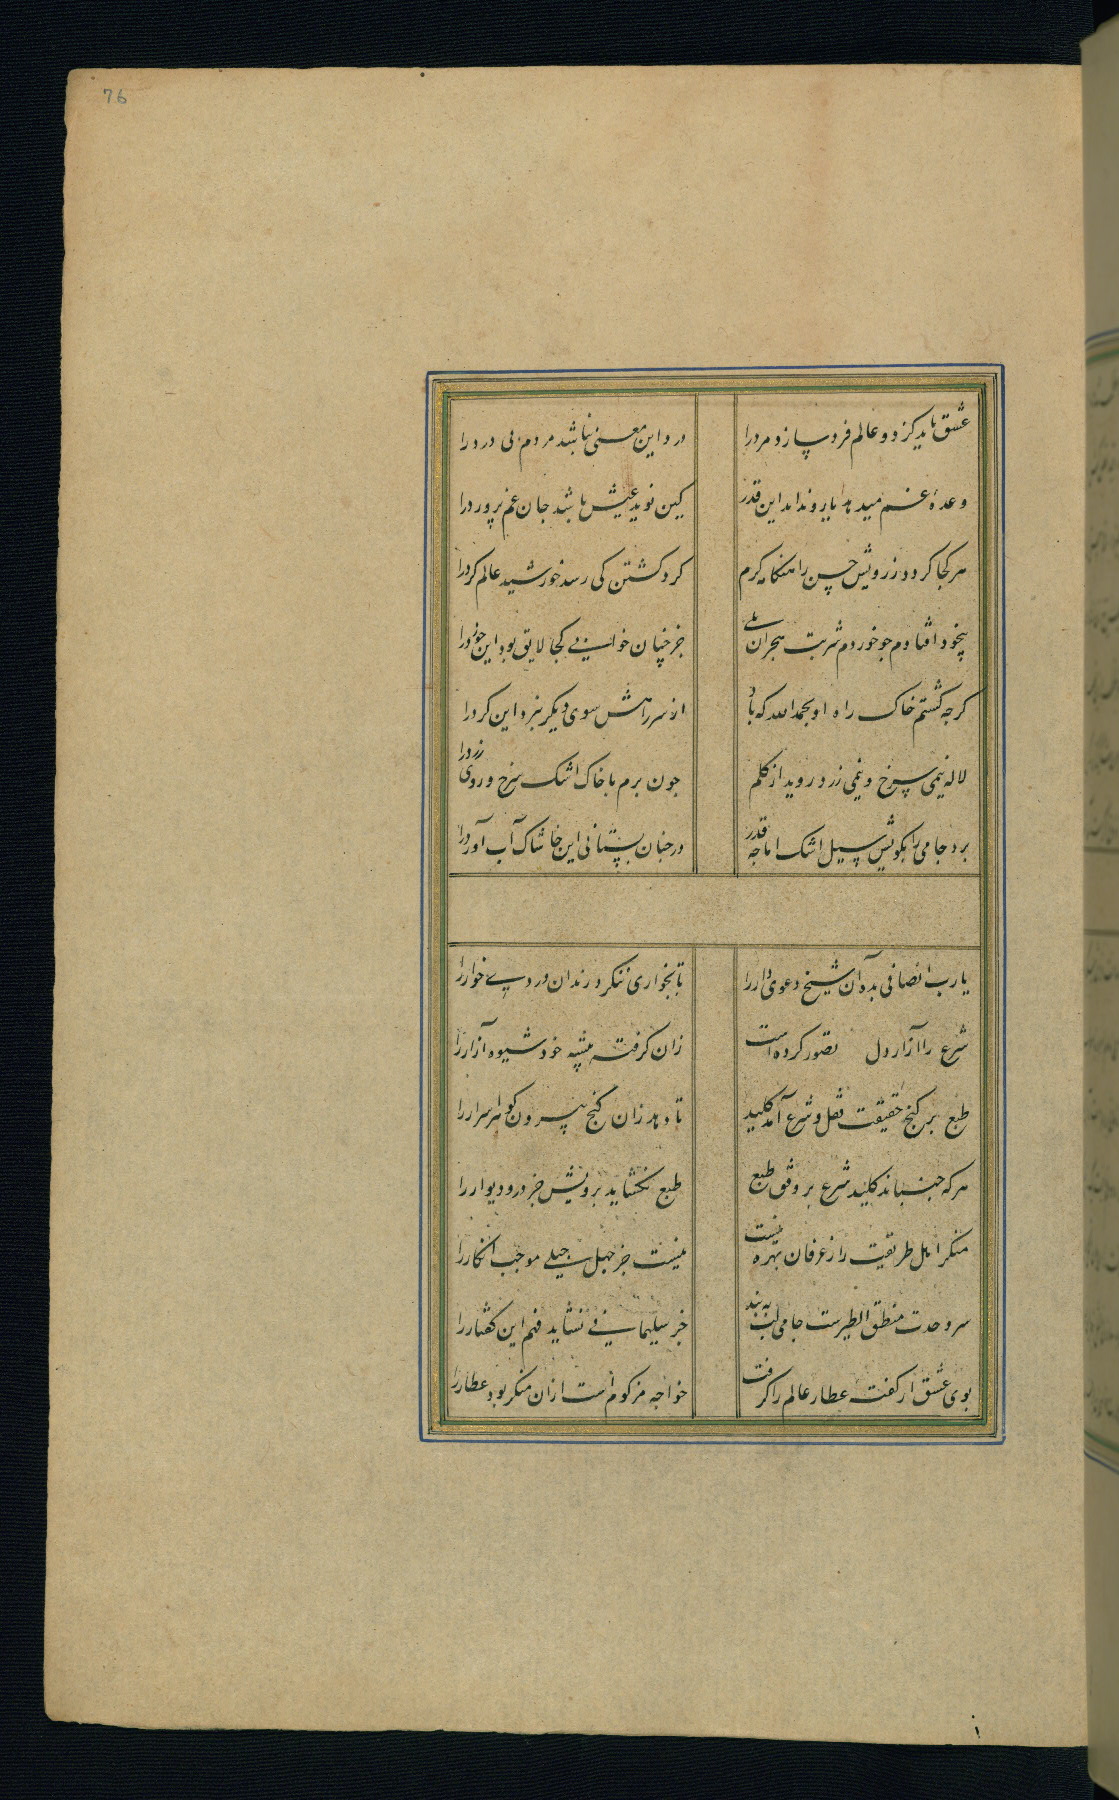 76
عشق باید کز دو عالم فرد سازد مرد را درد این معنی نباشد مردم بی درد را
وعدهٔ غم میدهد یار و نداند این قدر کین نوید عیش باشد جان غم پرورد را
هر کجا کردد ز رویش حسن را هنکامه کرم کرد کشتن کی رسد خورشید عالم کرد را
بیخود افتادم چو خوردم شربت هجران بلی جز چنان خوابی کجا لایق بود این خورد را
کرچه کشتم خاک راه او بحمد الله که باد از سر راهش سوی دیکر نبرد این کرد را
لاله نیمی سرخ و نیمی زرد روید از کلم چون برم با خاک اشک سرخ و روی زرد را
برد جامی را بکویش سیل اشک اما چه قدر در چنان بستانی این خاشاک آب آورد را
یارب انصافی بده آن شیخ دعوی دار را تا بخواری ننکرد رندان دردی خوار را
شرع را آزار دل تصور کرده است زان کرفته پیشه خود شیوه آزار را
طبع بر کنج حقیقت قفل و شرع آمد کلید تا دهد زان کنج بیرون کوهر اسرار را
هر که جنباند کلید شرع بر وفق طبع طبع نکشاید برویش جز در و دیوار را
منکر اهل طریقت را ز عرفان بهره نیست نیست جز جهل جبلی موجب انکار را
سر وحدت منطق الطیرست جامی لب به بند جز سلیمانی نشاید فهم این کفتار را
بوی عشق ار کفته عطار عالم را کرفت خواجه مزکوم است از ان منکر بود عطار را